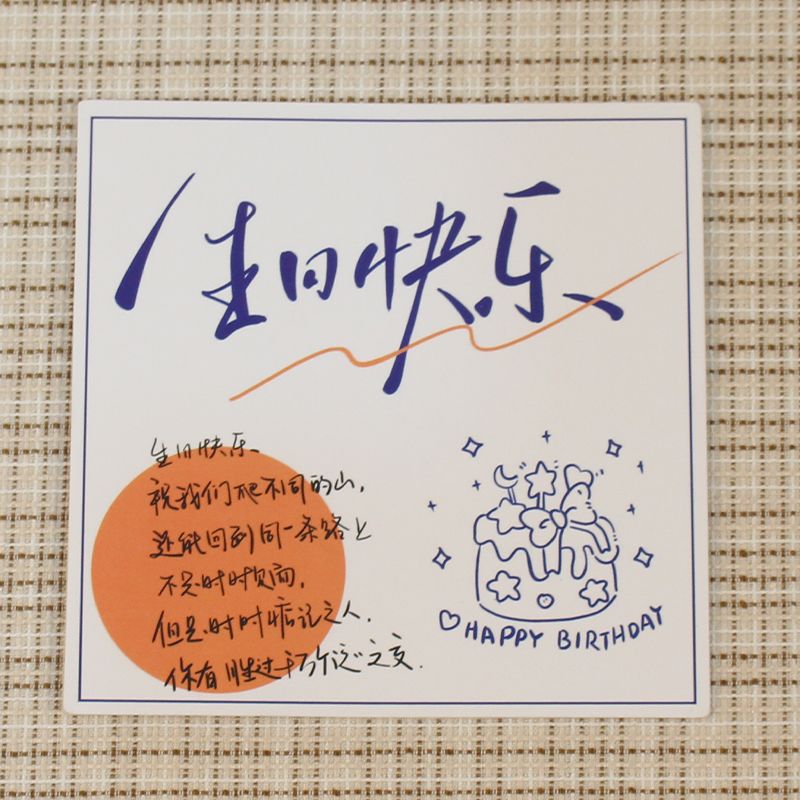 生日快乐
生日快乐、
祝我们爬不同的山,
还能回到同一条路上
不是时时见面,
但是时时惦记之人.
你有胜过千万个泛泛之交.
HAPPY BIRTHDAY